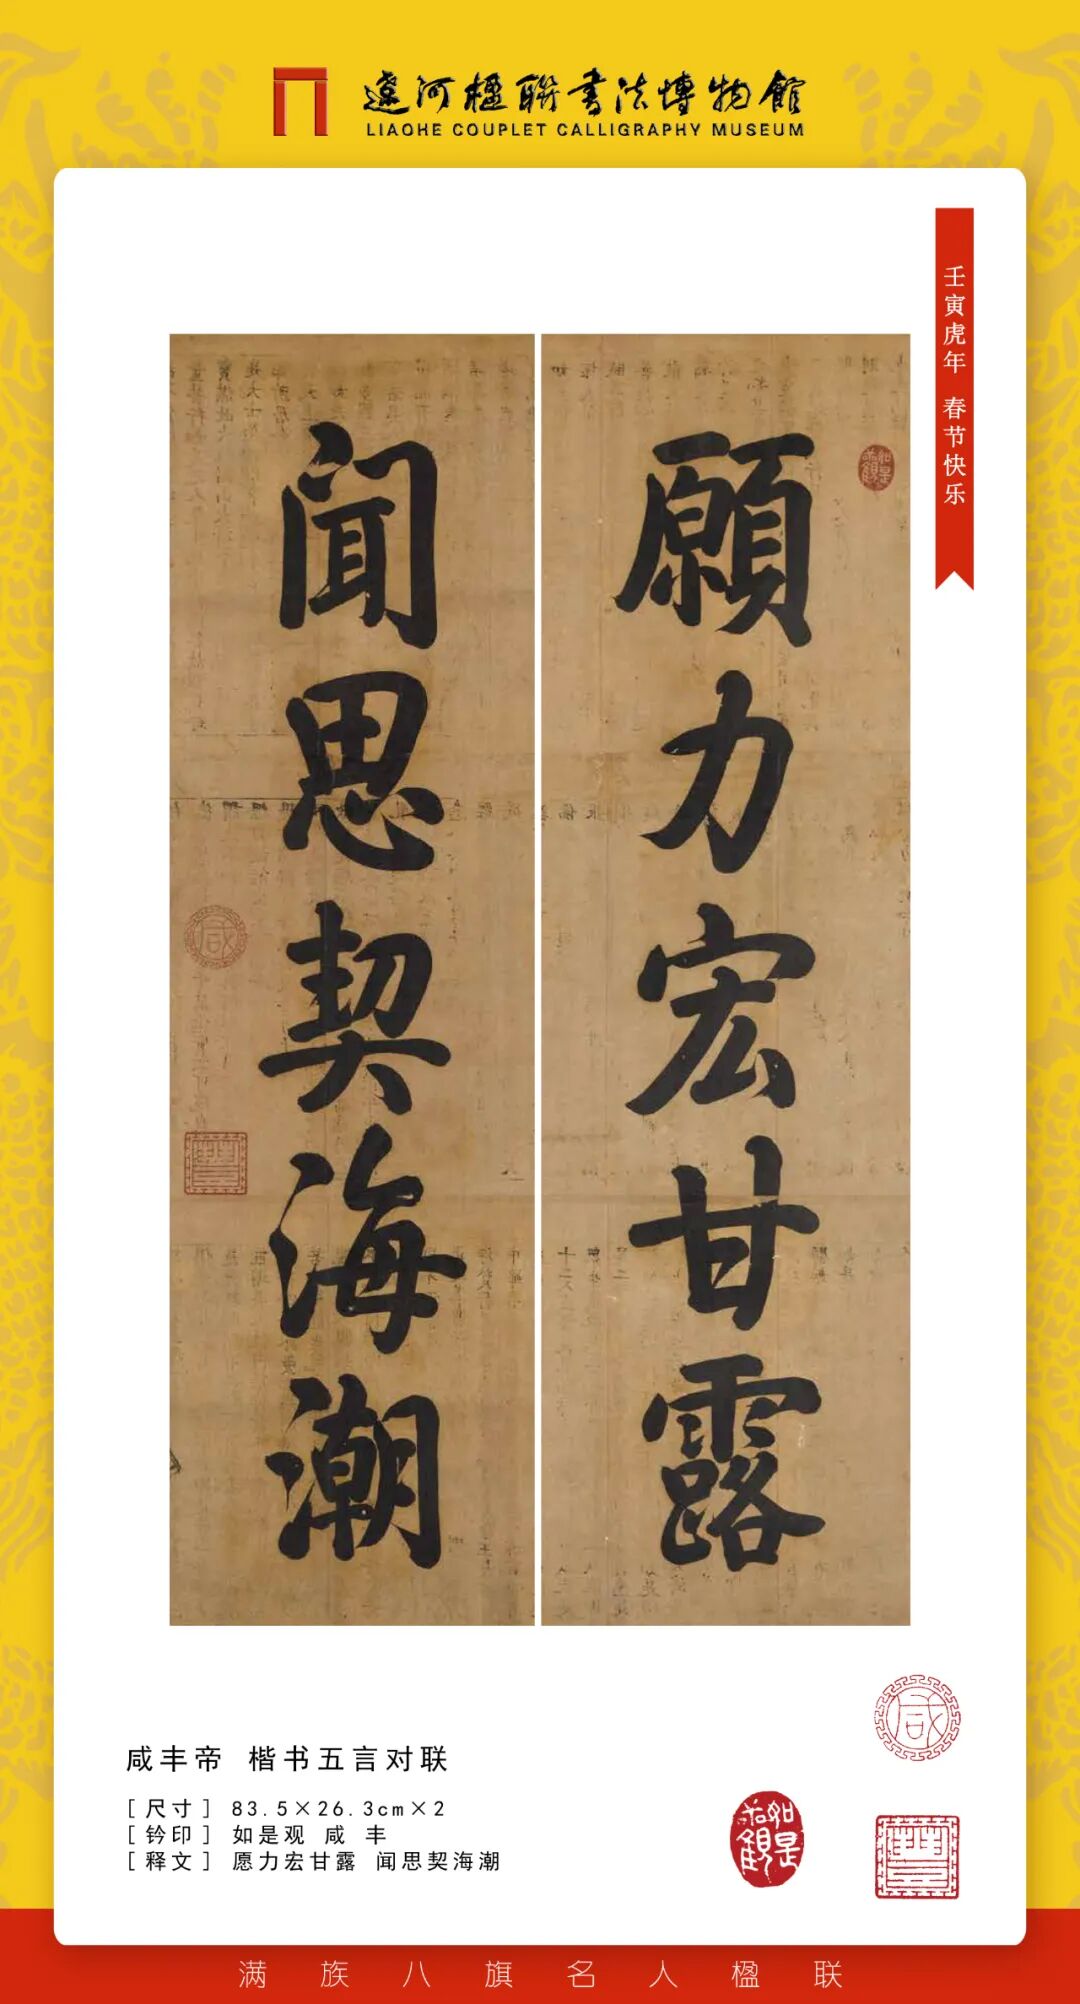 遼河楹聯書法博物館
LIAOHE COUPLET CALLIGRAPHY MUSEUM
壬寅虎年 春节快乐
願力宏甘露
如是观
闻思契海潮
咸
豐
咸丰帝 楷书五言对联
[尺寸] 83.5×26.3cm×2
[钤印] 如是观 咸 丰
[释文] 愿力宏甘露 闻思契海潮
咸
如是观
豐
满族八旗名人楹联